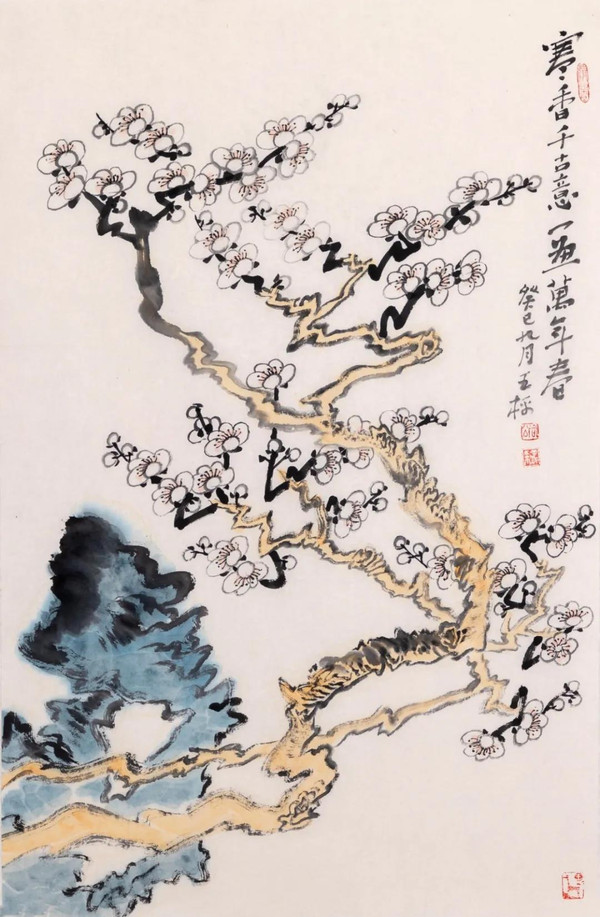 寒香千古意一画萬年春
癸巳九月王梣